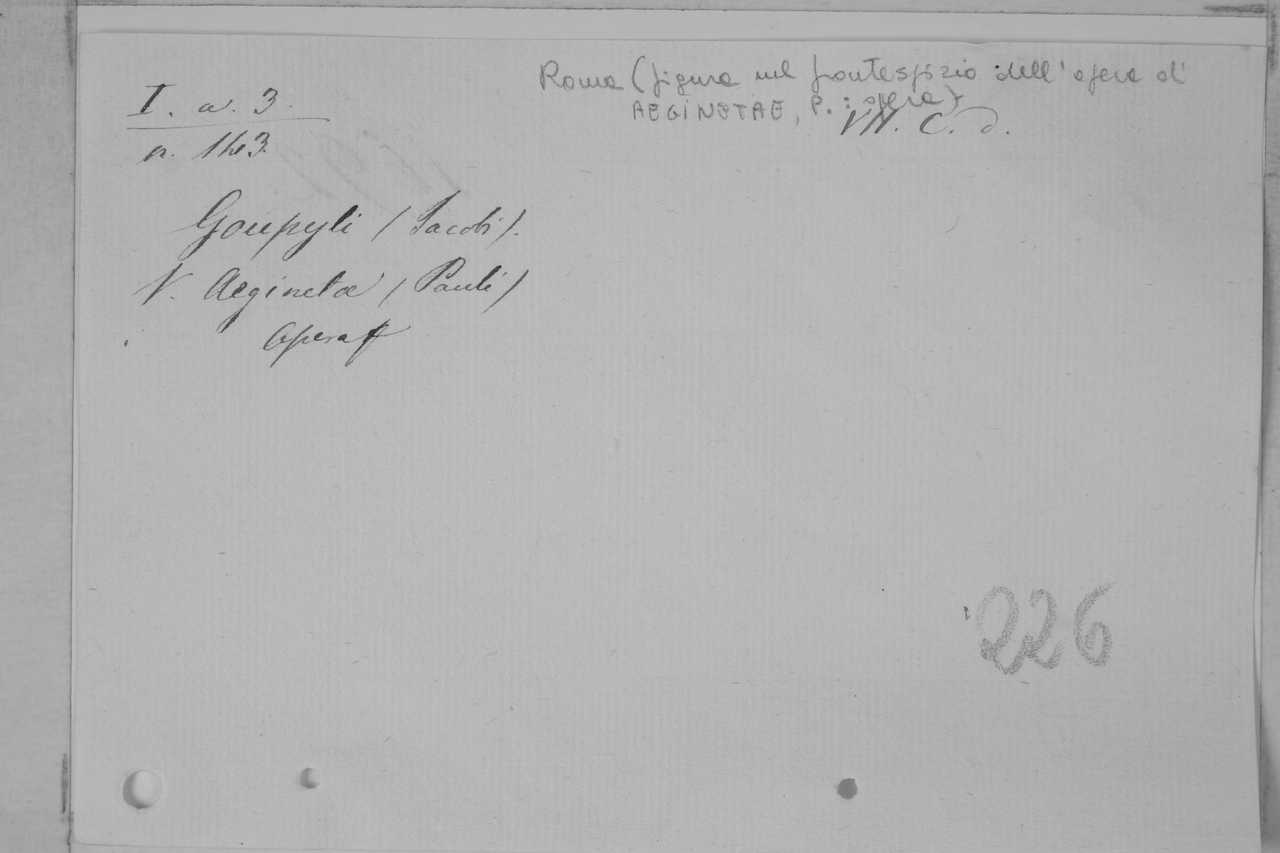 Roma (figura nel frontespizio dell'opera di
AEGINETAE, P. : opera)
I. a. 3.
VII. C. d.
n. 143
Goupyli (Jacobi).
V. Aeginetae (Pauli)
Opera
226